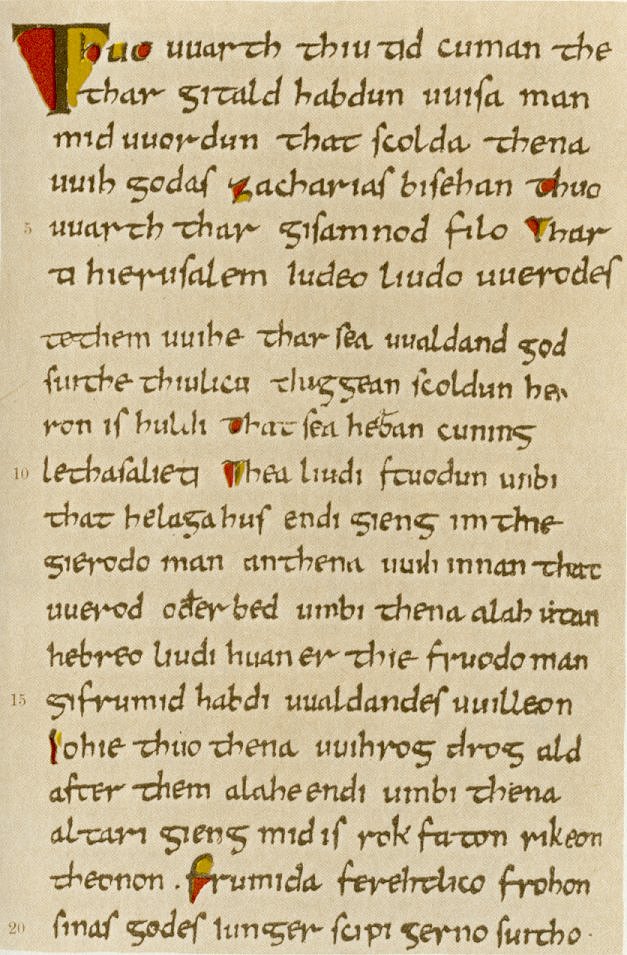 Thuo uuarth thiu tid cuman the
thar gitald habdun uuisa man
mid uuordun that scolda thena
uuih godas Zacharias bisehan Thuo
5 uuarth thar gisamnod filo Thar
ti hierusalem Iudeo liudo uuerodes
tethem uuihe thar sea uualdand god
suithe thiulicu thiggean scoldun her
ron is huldi That sea heƀan cuning
10 lethasalieti Thea liudi stuodun umbi
that helaga hus endi gieng im thie
gierodo man an thena uuih innan that
uuerod oðer bed umbi thena alah utan
hebreo liudi huan er thie fruodo man
15 gifrumid habdi uualdandes uuilleon
Sohie thuo thena uuihrog drog ald
after them alahe endi umbi thena
altari gieng mid is rokfaton rikeon
theonon . frumida ferehtlico frohon
20 sinas godes iunger scipi gerno suitho ·